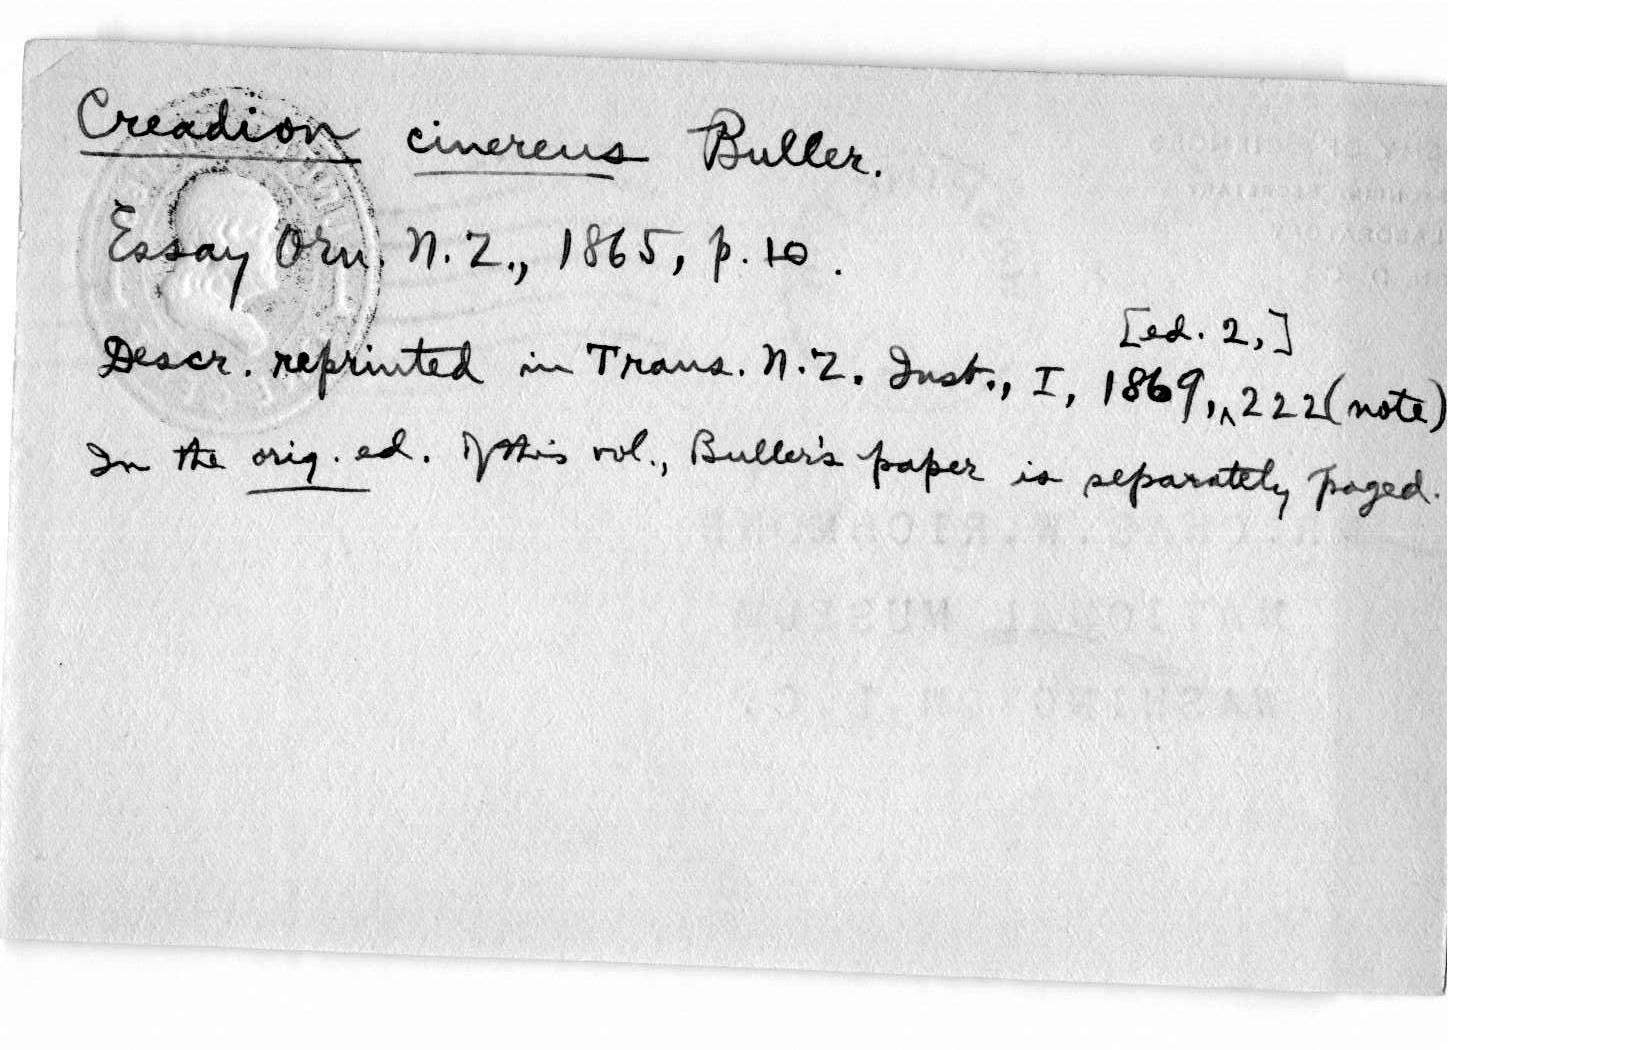 Creadion cinereus Buller.
Essay Orn. N.Z., 1865, p. 10.
[ed. 2,]
Descr. reprinted in Trans. N.Z. Inst., I, 1869, ‸ 222 (note)
In the orig. ed. of this vol., Buller's paper is separately paged.
CHAS. W. RICHMOND
NATIONAL MUSEUM
WASHINGTON D. C.